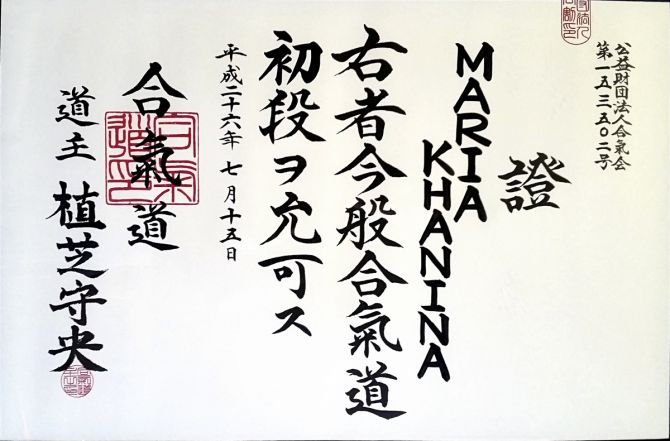 公益財団法人合氣会
第一五三五〇二号
證
MARIA
KHANINA
右者今般合氣道
初段ヲ允可ス
平成二十六年 七月十五日
合氣道
道主 植芝守央